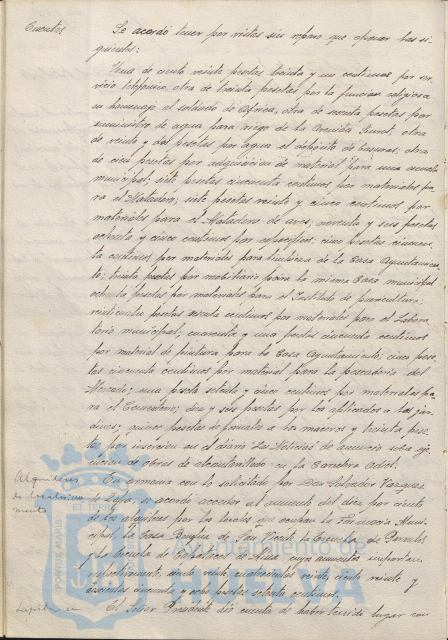 Cuentas
Se acordó tener por vistas sin reparo que oponer las si-
guientes:
Una de ciento veinte pesetas treinta y un centimos por ser-
vicio telefonico, otra de treinta pesetas por la funcion religiosa
en homenaje al soldado de Africa, otra de sesenta pesetas por
suministro de agua para riego de la Avenida otra
de veinte y dos pesetas por agua al depósito de basuras; otra
de cien pesetas por adquisicion de material para una escuela
municipal; siete pesetas cincuenta centimos por materiales pa-
ra el Matadero; siete pesetas veinte y cinco centimos por
materiales para el Matadero de aves; noventa y seis pesetas
ochenta y cinco centimos por especificos; cinco pesetas cincuen-
ta centimos por materiales para limpieza de la Casa Ayuntamien-
to; treinta pesetas por mobiliario para la misma Casa municipal
ochenta pesetas por materiales para el Instituto de puericultura;
veinticinco pesetas centimos por materiales para el Labora-
torio municipal; cuarenta y una pesetas cincuenta centimos
por material de pintura para la Casa Ayuntamiento, cinco pese-
tas cincuenta centimos por material para la pescaderia del
Mercado; una peseta setenta y cinco centimos por materiales pa-
ra el Cementerio; diez y seis pesetas por los aplicados a los jar-
dines; quince pesetas de jornales a los maceros y treinta pese-
tas por insercion en el diario Las Noticias de anuncio sobre eje-
cucion de obras de alcantarillado en la Carretera Odiel.
Alquileres
de locales en
aumento
En armonia con lo solicitado por Don Salvador Vazquez
de Zafra, se acordó acceder al aumento del diez por ciento
de los alquileres por los locales que ocupan la Farmacia Muni-
cipal, la Casa Bosque de San Vicente, la Escuela de Parvulos
y la Escuela de cuyos aumentos importan
respectivamente, ciento veinte, cuatrocientas veinte, ciento veinte y
doscientas cincuenta y ocho pesetas setenta centimos.
El Señor Presidente dió cuenta de haber tenido lugar con
PORTUS MARIS ET TERRAE
Ayuntamiento de
HUELVA